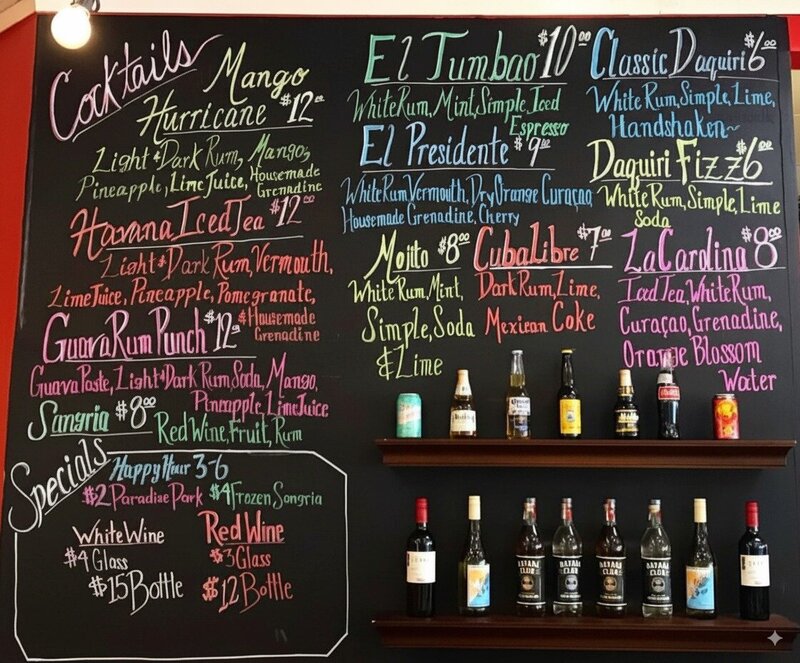 Cocktails
Mango
Hurricane $12.00
Light & Dark Rum, Mango,
Pineapple, Lime Juice, Housemade
Grenadine
Havana Iced Tea $12.00
Light & Dark Rum, Vermouth,
Lime Juice, Pineapple, Pomegranate,
& Housemade
Grenadine
Guava Rum Punch $12.00
Guava Paste, Light & Dark Rum, Soda, Mango,
Pineapple, Lime Juice
Sangria $8.00
Red Wine, Fruit, Rum
Specials
Happy Hour 3-6
$2 Paradise Park $4 Frozen Sangria
White Wine
$4 Glass
$15 Bottle
Red Wine
$3 Glass
$12 Bottle
El Tumbao $10.00
White Rum, Mint, Simple, Iced
Espresso
El Presidente $9.00
White Rum, Vermouth, Dry Orange Curaçao,
Housemade Grenadine, Cherry
Mojito $8.00
White Rum, Mint,
Simple, Soda
& Lime
Cuba Libre $7.00
Dark Rum, Lime,
Mexican Coke
Classic Daquiri $6.00
White Rum, Simple, Lime,
Handshaken~
Daquiri Fizz $6.00
White Rum, Simple, Lime
Soda
La Carolina $8.00
Iced Tea, White Rum,
Curaçao, Grenadine,
Orange Blossom
Water